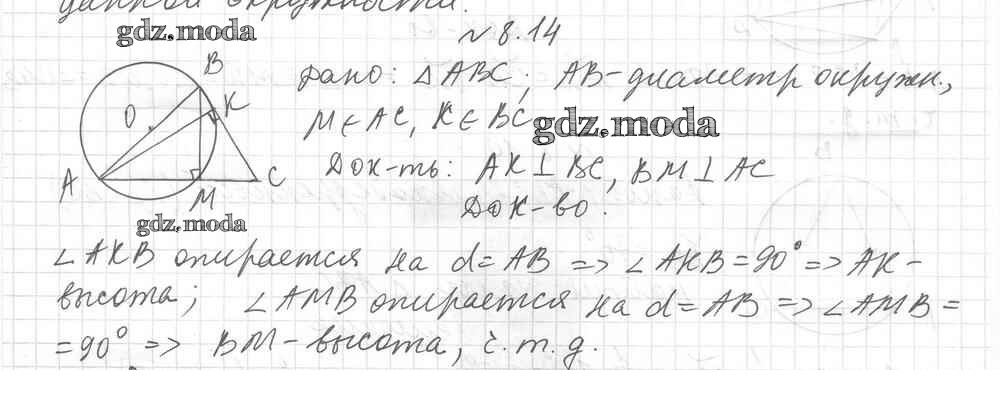 данной окружности.
gdz.moda
№ 8.14
B
K
O
A
M
C
gdz.moda
Дано: △ABC; AB-диаметр окружн.,
M∈AC, K∈BC
gdz.moda
Док-ть: AK⊥BC, BM⊥AC
Док-во.
∠AKB опирается на d=AB => ∠AKB=90° => AK-
высота; ∠AMB опирается на d=AB => ∠AMB=
=90° => BM-высота, ч.т.д.